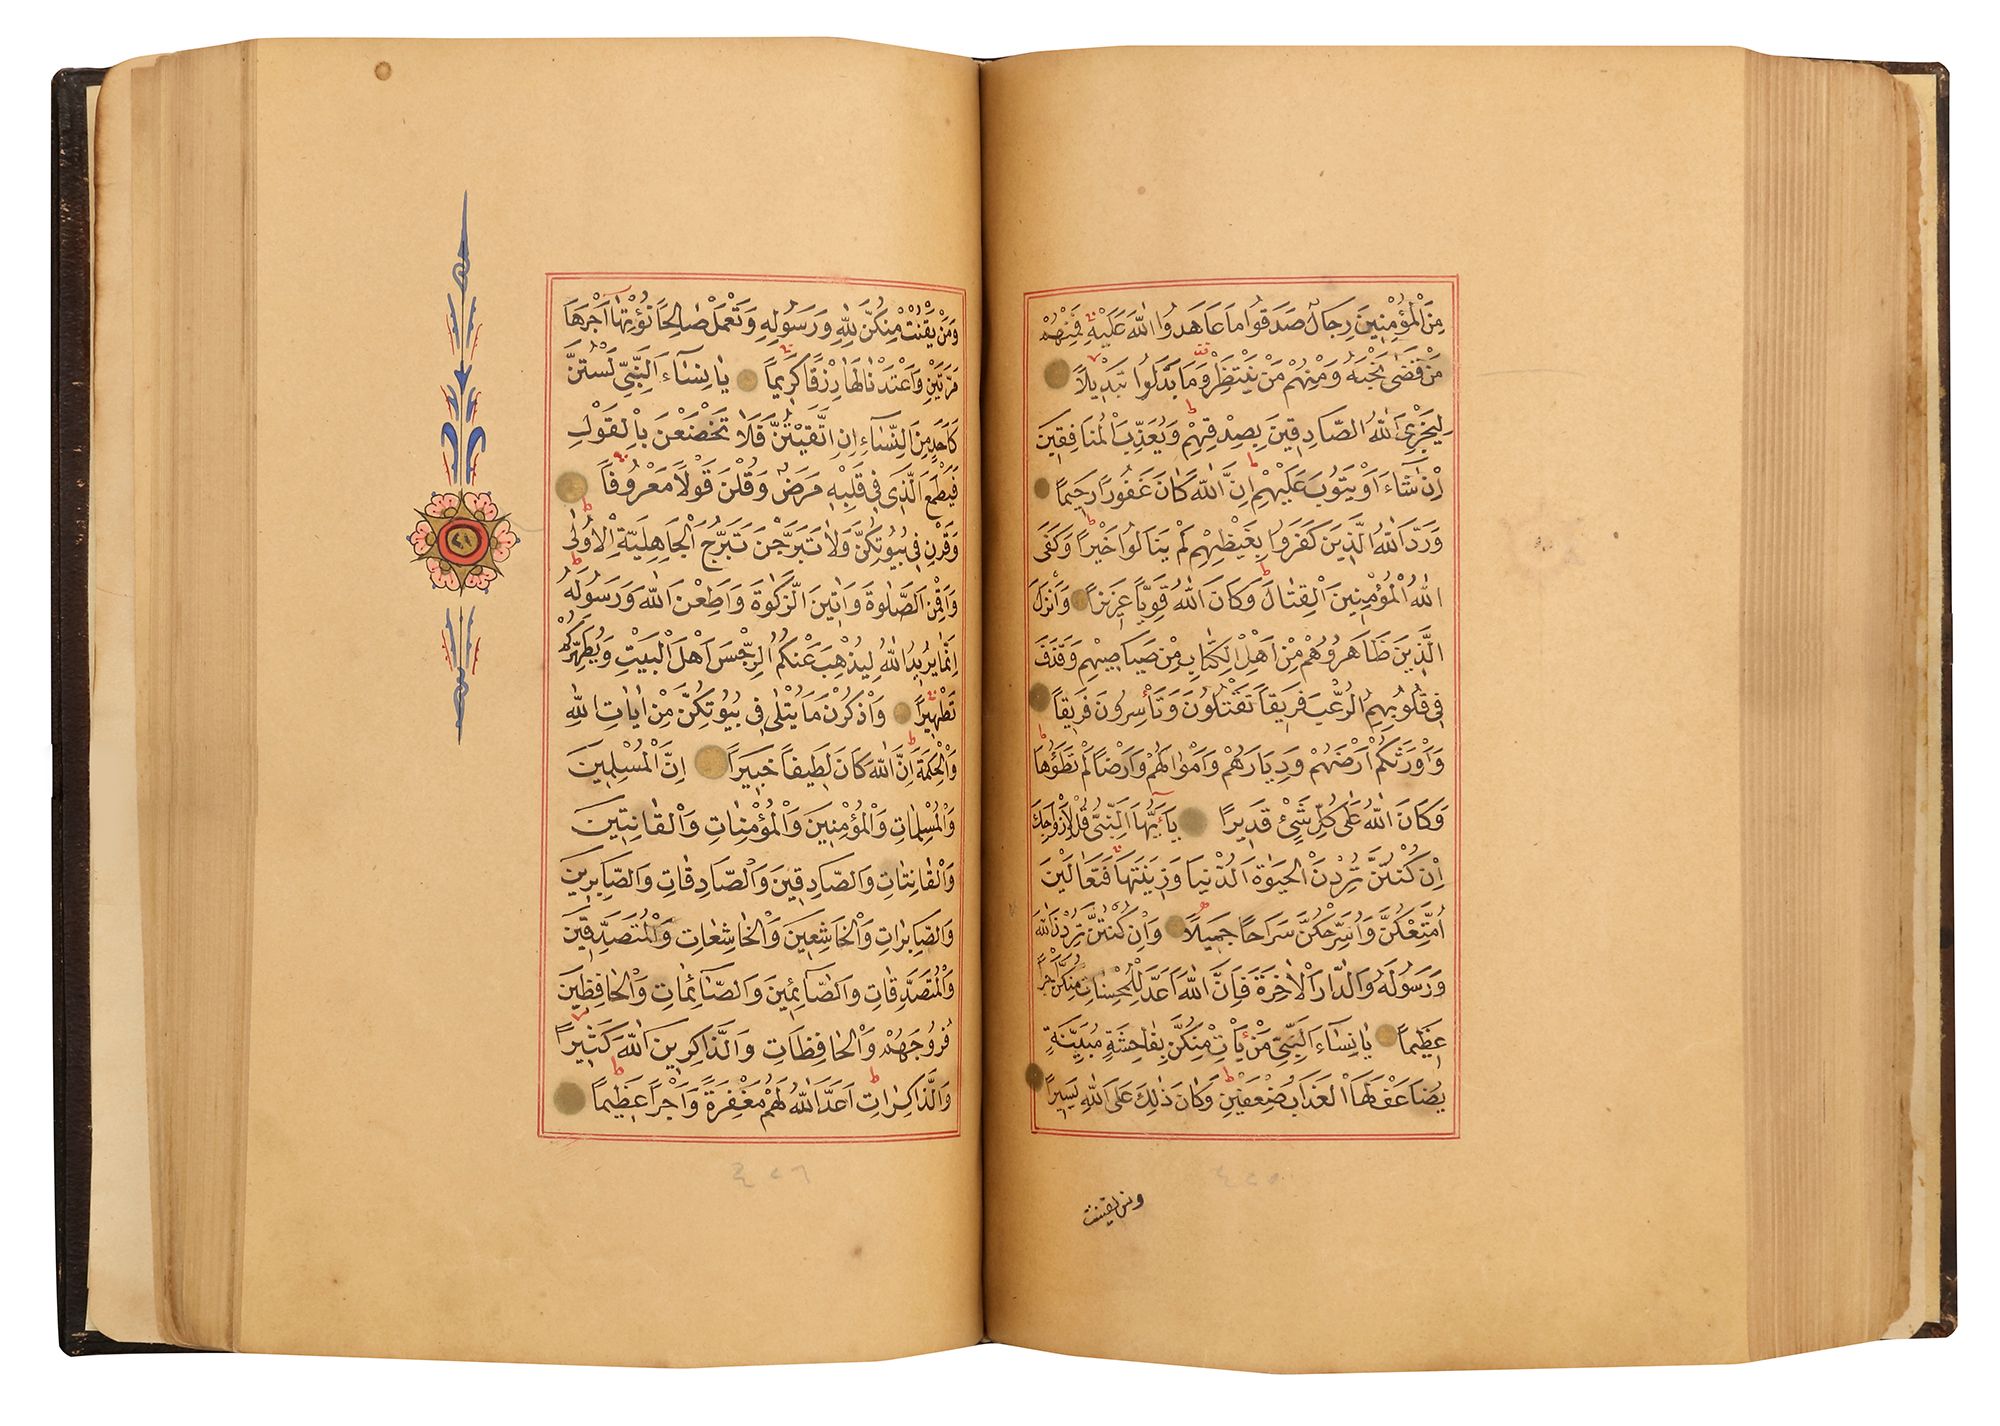 مِنَ الْمُؤْمِنِينَ رِجَالٌ صَدَقُوا مَا عَاهَدُوا اللّٰهَ عَلَيْهِ فَمِنْهُمْ
مَنْ قَضٰى نَحْبَهُ وَمِنْهُمْ مَنْ يَنْتَظِرُ وَمَا بَدَّلُوا تَبْدِيلًا
لِيَجْزِيَ اللّٰهُ الصَّادِقِينَ بِصِدْقِهِمْ وَيُعَذِّبَ الْمُنَافِقِينَ
اِنْ شَآءَ اَوْ يَتُوبَ عَلَيْهِمْ اِنَّ اللّٰهَ كَانَ غَفُورًا رَحِيمًا
وَرَدَّ اللّٰهُ الَّذِينَ كَفَرُوا بِغَيْظِهِمْ لَمْ يَنَالُوا خَيْرًا وَكَفَى
اللّٰهُ الْمُؤْمِنِينَ الْقِتَالَ وَكَانَ اللّٰهُ قَوِيًّا عَزِيزًا وَاَنْزَلَ
الَّذِينَ ظَاهَرُوهُمْ مِنْ اَهْلِ الْكِتَابِ مِنْ صَيَاصِيهِمْ وَقَذَفَ
فِي قُلُوبِهِمُ الرُّعْبَ فَرِيقًا تَقْتُلُونَ وَتَأْسِرُونَ فَرِيقًا
وَاَوْرَثَكُمْ اَرْضَهُمْ وَدِيَارَهُمْ وَاَمْوٰالَهُمْ وَاَرْضًا لَمْ تَطَؤُهَا
وَكَانَ اللّٰهُ عَلٰى كُلِّ شَيْءٍ قَدِيرًا يَآ اَيُّهَا النَّبِيُّ قُلْ لِاَزْوَاجِكَ
اِنْ كُنْتُنَّ تُرِدْنَ الْحَيٰوةَ الدُّنْيَا وَزِينَتَهَا فَتَعَالَيْنَ
اُمَتِّعْكُنَّ وَاُسَرِّحْكُنَّ سَرَاحًا جَمِيلًا وَاِنْ كُنْتُنَّ تُرِدْنَ اللّٰهَ
وَرَسُولَهُ وَالدَّارَ الْاٰخِرَةَ فَاِنَّ اللّٰهَ اَعَدَّ لِلْمُحْسِنَاتِ مِنْكُنَّ اَجْرًا
عَظِيمًا يَا نِسَآءَ النَّبِيِّ مَنْ يَأْتِ مِنْكُنَّ بِفَاحِشَةٍ مُبَيِّنَةٍ
يُضَاعَفْ لَهَا الْعَذَابُ ضِعْفَيْنِ وَكَانَ ذٰلِكَ عَلَى اللّٰهِ يَسِيرًا
٤٢٥
ومن يقنت
وَمَنْ يَقْنُتْ مِنْكُنَّ لِلّٰهِ وَرَسُولِهِ وَتَعْمَلْ صَالِحًا نُؤْتِهَآ اَجْرَهَا
مَرَّتَيْنِ وَاَعْتَدْنَا لَهَا رِزْقًا كَرِيمًا يَا نِسَآءَ النَّبِيِّ لَسْتُنَّ
كَاَحَدٍ مِنَ النِّسَآءِ اِنِ اتَّقَيْتُنَّ فَلَا تَخْضَعْنَ بِالْقَوْلِ
فَيَطْمَعَ الَّذِي فِي قَلْبِهِ مَرَضٌ وَقُلْنَ قَوْلًا مَعْرُوفًا
وَقَرْنَ فِي بُيُوتِكُنَّ وَلَا تَبَرَّجْنَ تَبَرُّجَ الْجَاهِلِيَّةِ الْاُولٰى
وَاَقِمْنَ الصَّلٰوةَ وَاٰتِينَ الزَّكٰوةَ وَاَطِعْنَ اللّٰهَ وَرَسُولَهُ
اِنَّمَا يُرِيدُ اللّٰهُ لِيُذْهِبَ عَنْكُمُ الرِّجْسَ اَهْلَ الْبَيْتِ وَيُطَهِّرَكُمْ
تَطْهِيرًا وَاذْكُرْنَ مَا يُتْلٰى فِي بُيُوتِكُنَّ مِنْ اٰيَاتِ اللّٰهِ
وَالْحِكْمَةِ اِنَّ اللّٰهَ كَانَ لَطِيفًا خَبِيرًا اِنَّ الْمُسْلِمِينَ
وَالْمُسْلِمَاتِ وَالْمُؤْمِنِينَ وَالْمُؤْمِنَاتِ وَالْقَانِتِينَ
وَالْقَانِتَاتِ وَالصَّادِقِينَ وَالصَّادِقَاتِ وَالصَّابِرِينَ
وَالصَّابِرَاتِ وَالْخَاشِعِينَ وَالْخَاشِعَاتِ وَالْمُتَصَدِّقِينَ
وَالْمُتَصَدِّقَاتِ وَالصَّآئِمِينَ وَالصَّآئِمَاتِ وَالْحَافِظِينَ
فُرُوجَهُمْ وَالْحَافِظَاتِ وَالذَّاكِرِينَ اللّٰهَ كَثِيرًا
وَالذَّاكِرَاتِ اَعَدَّ اللّٰهُ لَهُمْ مَغْفِرَةً وَاَجْرًا عَظِيمًا
٤٢٦